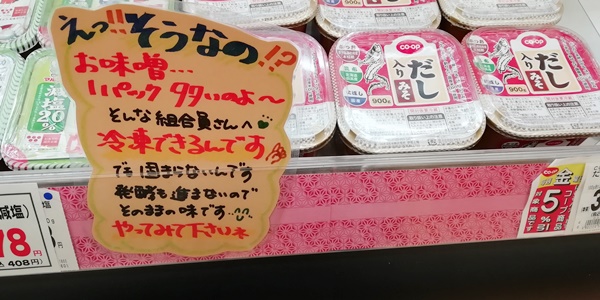 えっ!!そうなの!?
お味噌…
1パック 多いのよ〜
そんな組合員さんへ
冷凍できるんです
でも固まらないんです
発酵も進まないので
そのままの味です…
やってみて下さいネ
減塩
20%
CO·OP
だし
入り
みそ
900g
CO·OP
だし
入り
みそ
900g
減塩)
18
込 408円)
塩
金
コープ商品
5%引